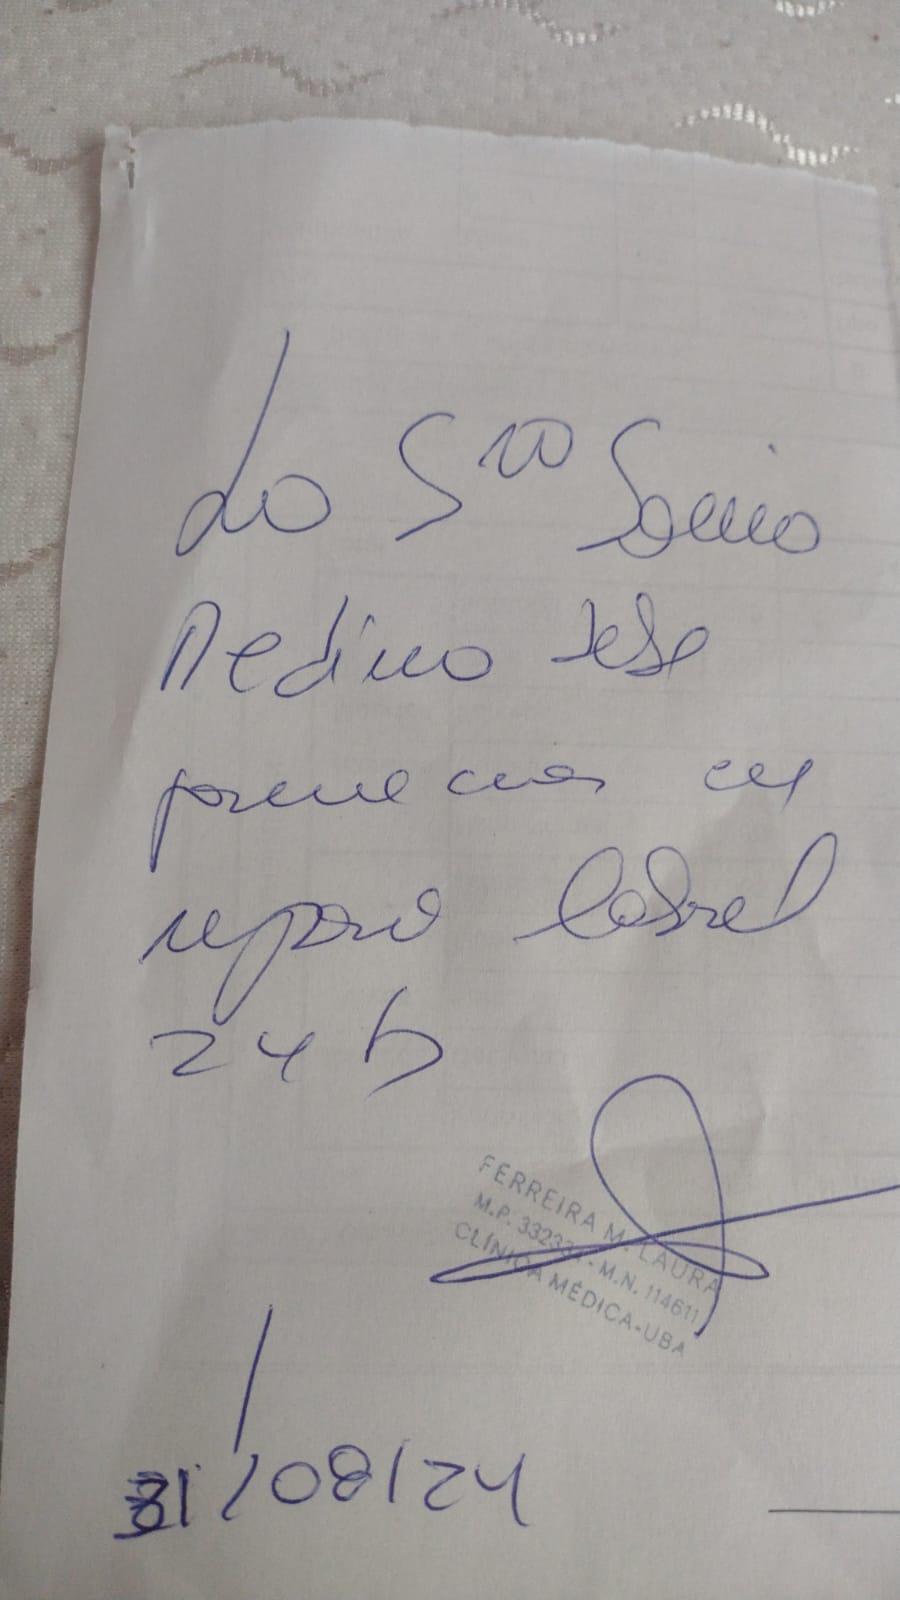 La Sra Sonia
Medina debe
permanecer en
reposo laboral
24 h
FERREIRA M. LAURA
M.P. 33233 - M.N. 114611
CLÍNICA MÉDICA-UBA
31/08/24